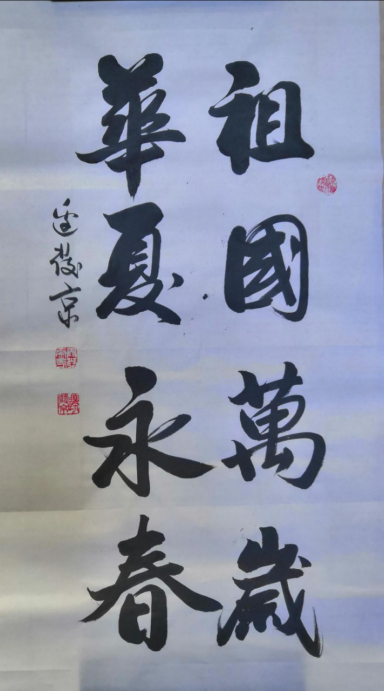 祖國萬歲
華夏永春